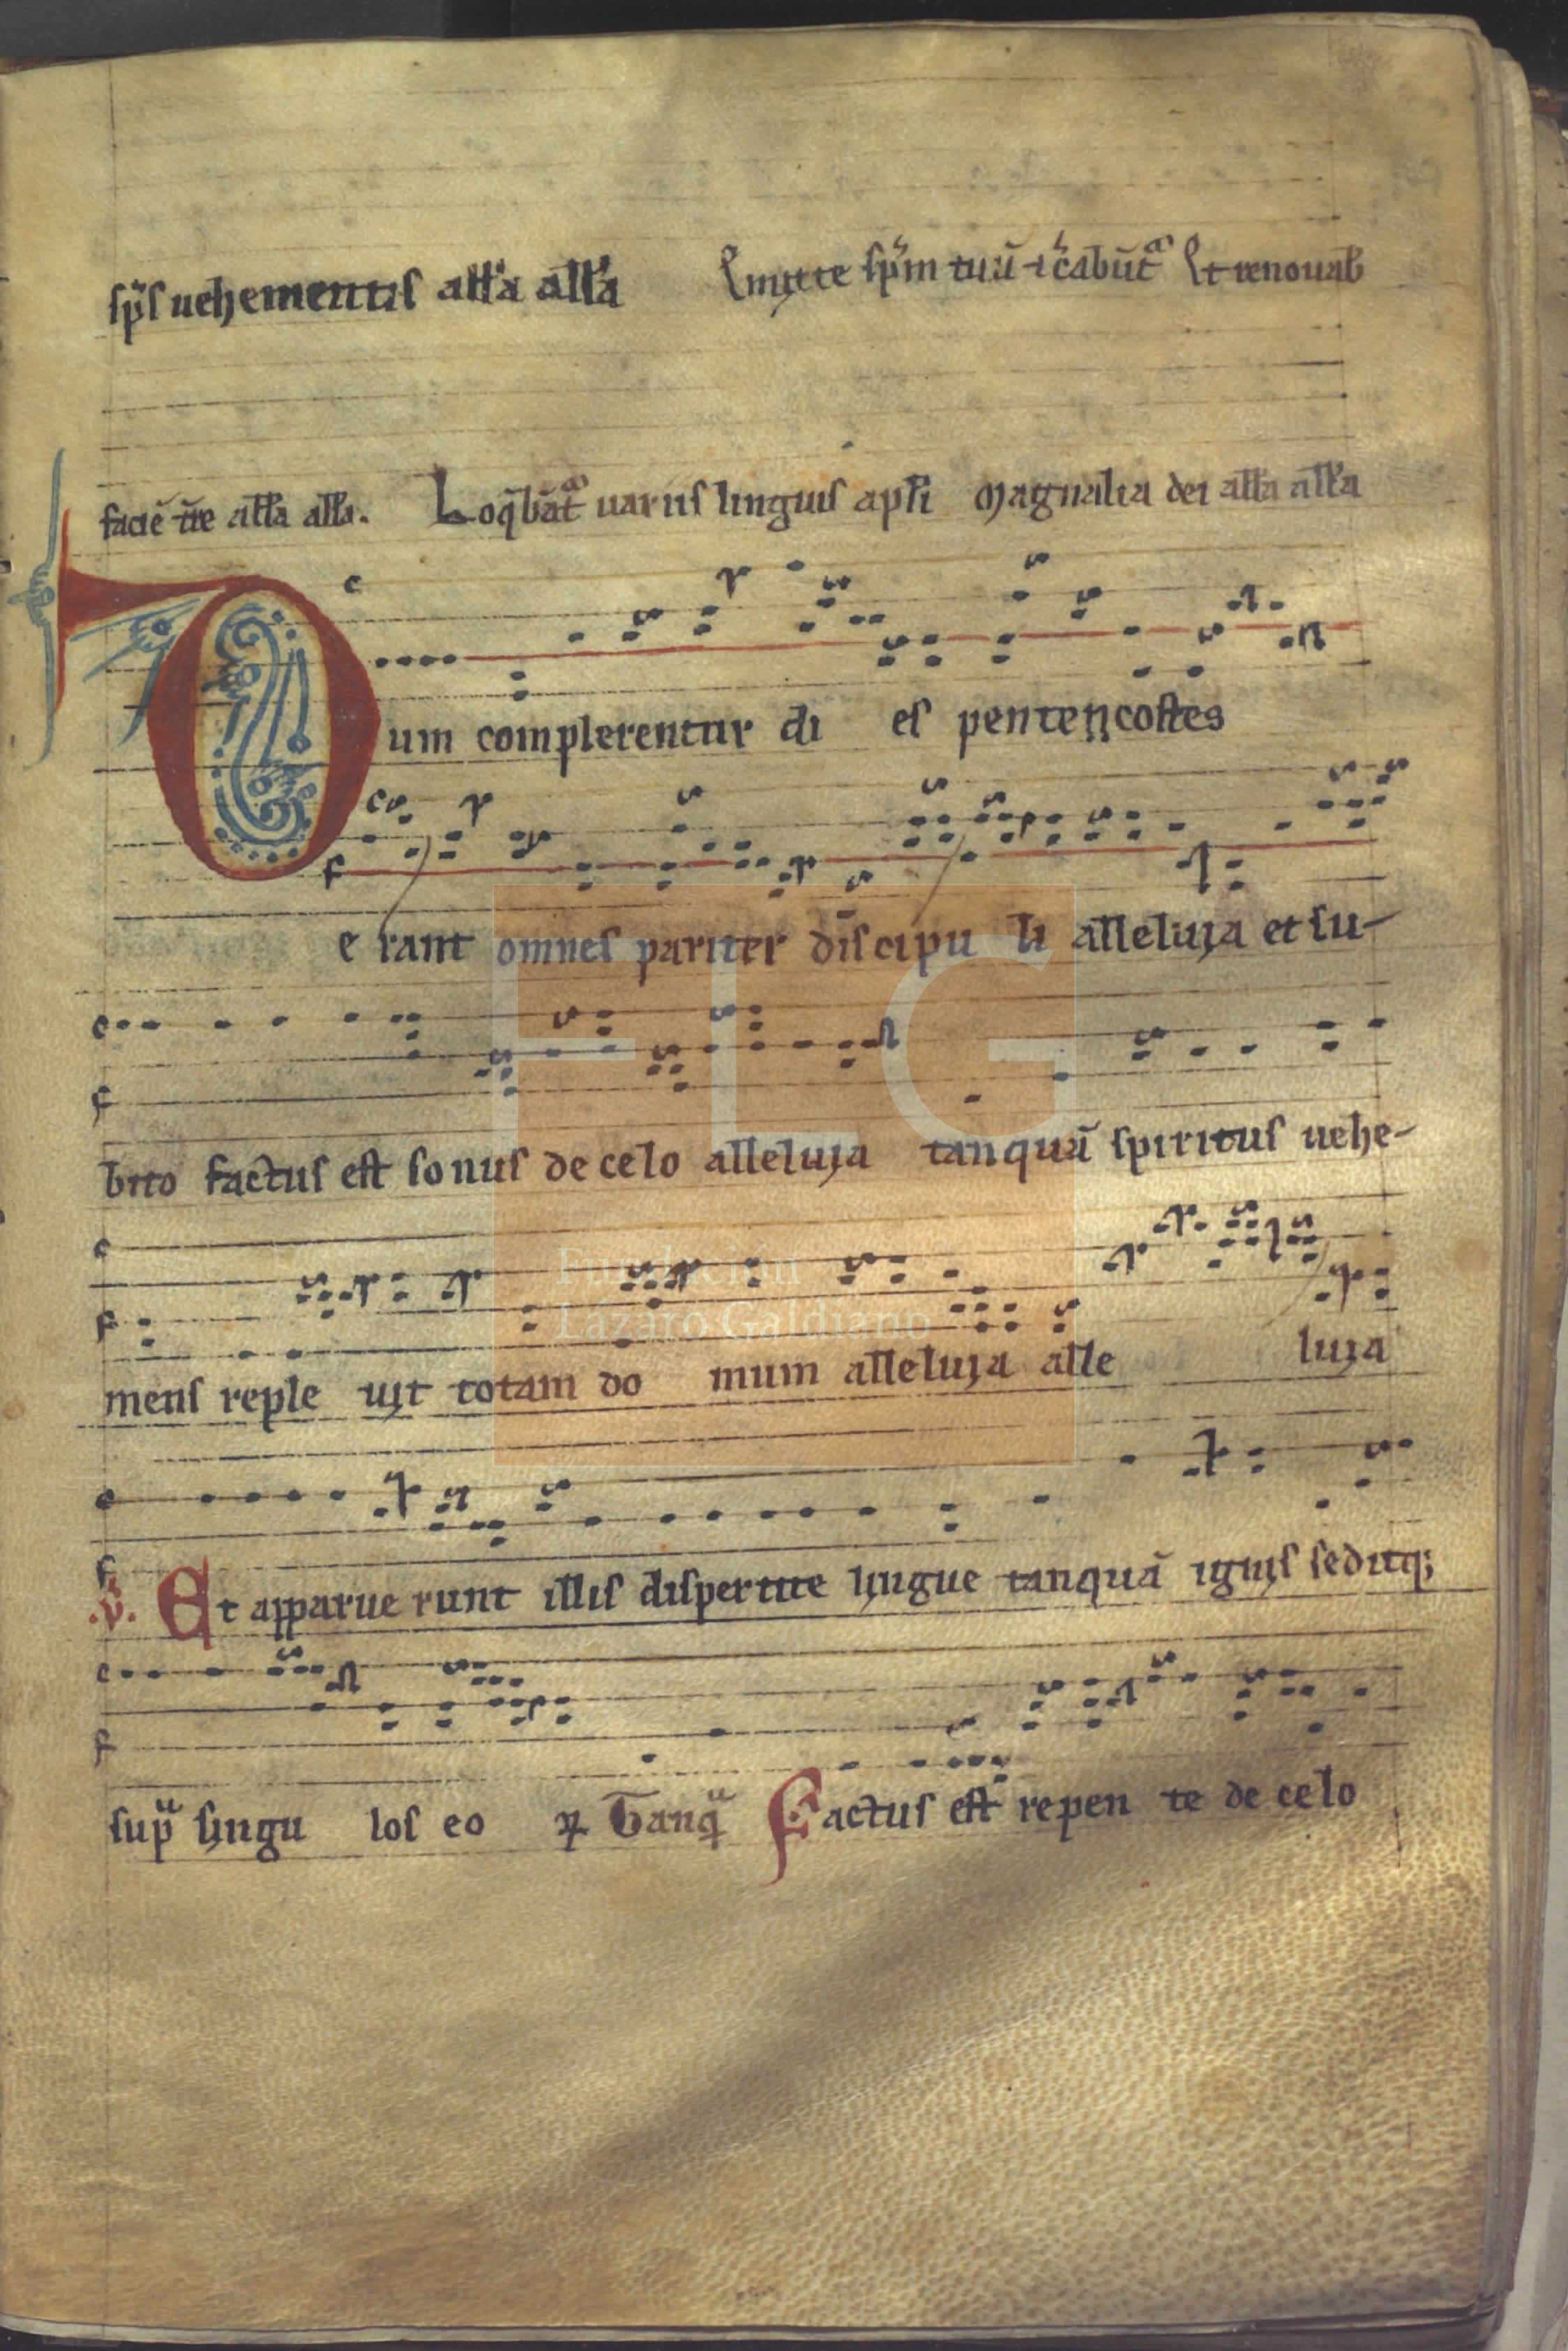 sp̄s uehementis all'a all'a Emitte sp̄m tuū ⁊ c̄abūt Et renouab
faciē tr̄e all'a all'a. Loq̄bāt uariis linguis apl̄i Magnalia dei all'a all'a
Dum complerentur di es pentencostes
e rant omnes pariter discipu li alleluja et su-
bito factus est sonus de celo alleluja tanquā spiritus uehe-
mens reple uit totam do mum alleluja alle luja
.V. Et apparue runt illis dispertite lingue tanquā ignis seditq;
sup̄ singu los eo ꝝ Tanq̄ Factus est repen te de celo
FLG
Fundación
Lázaro Galdiano